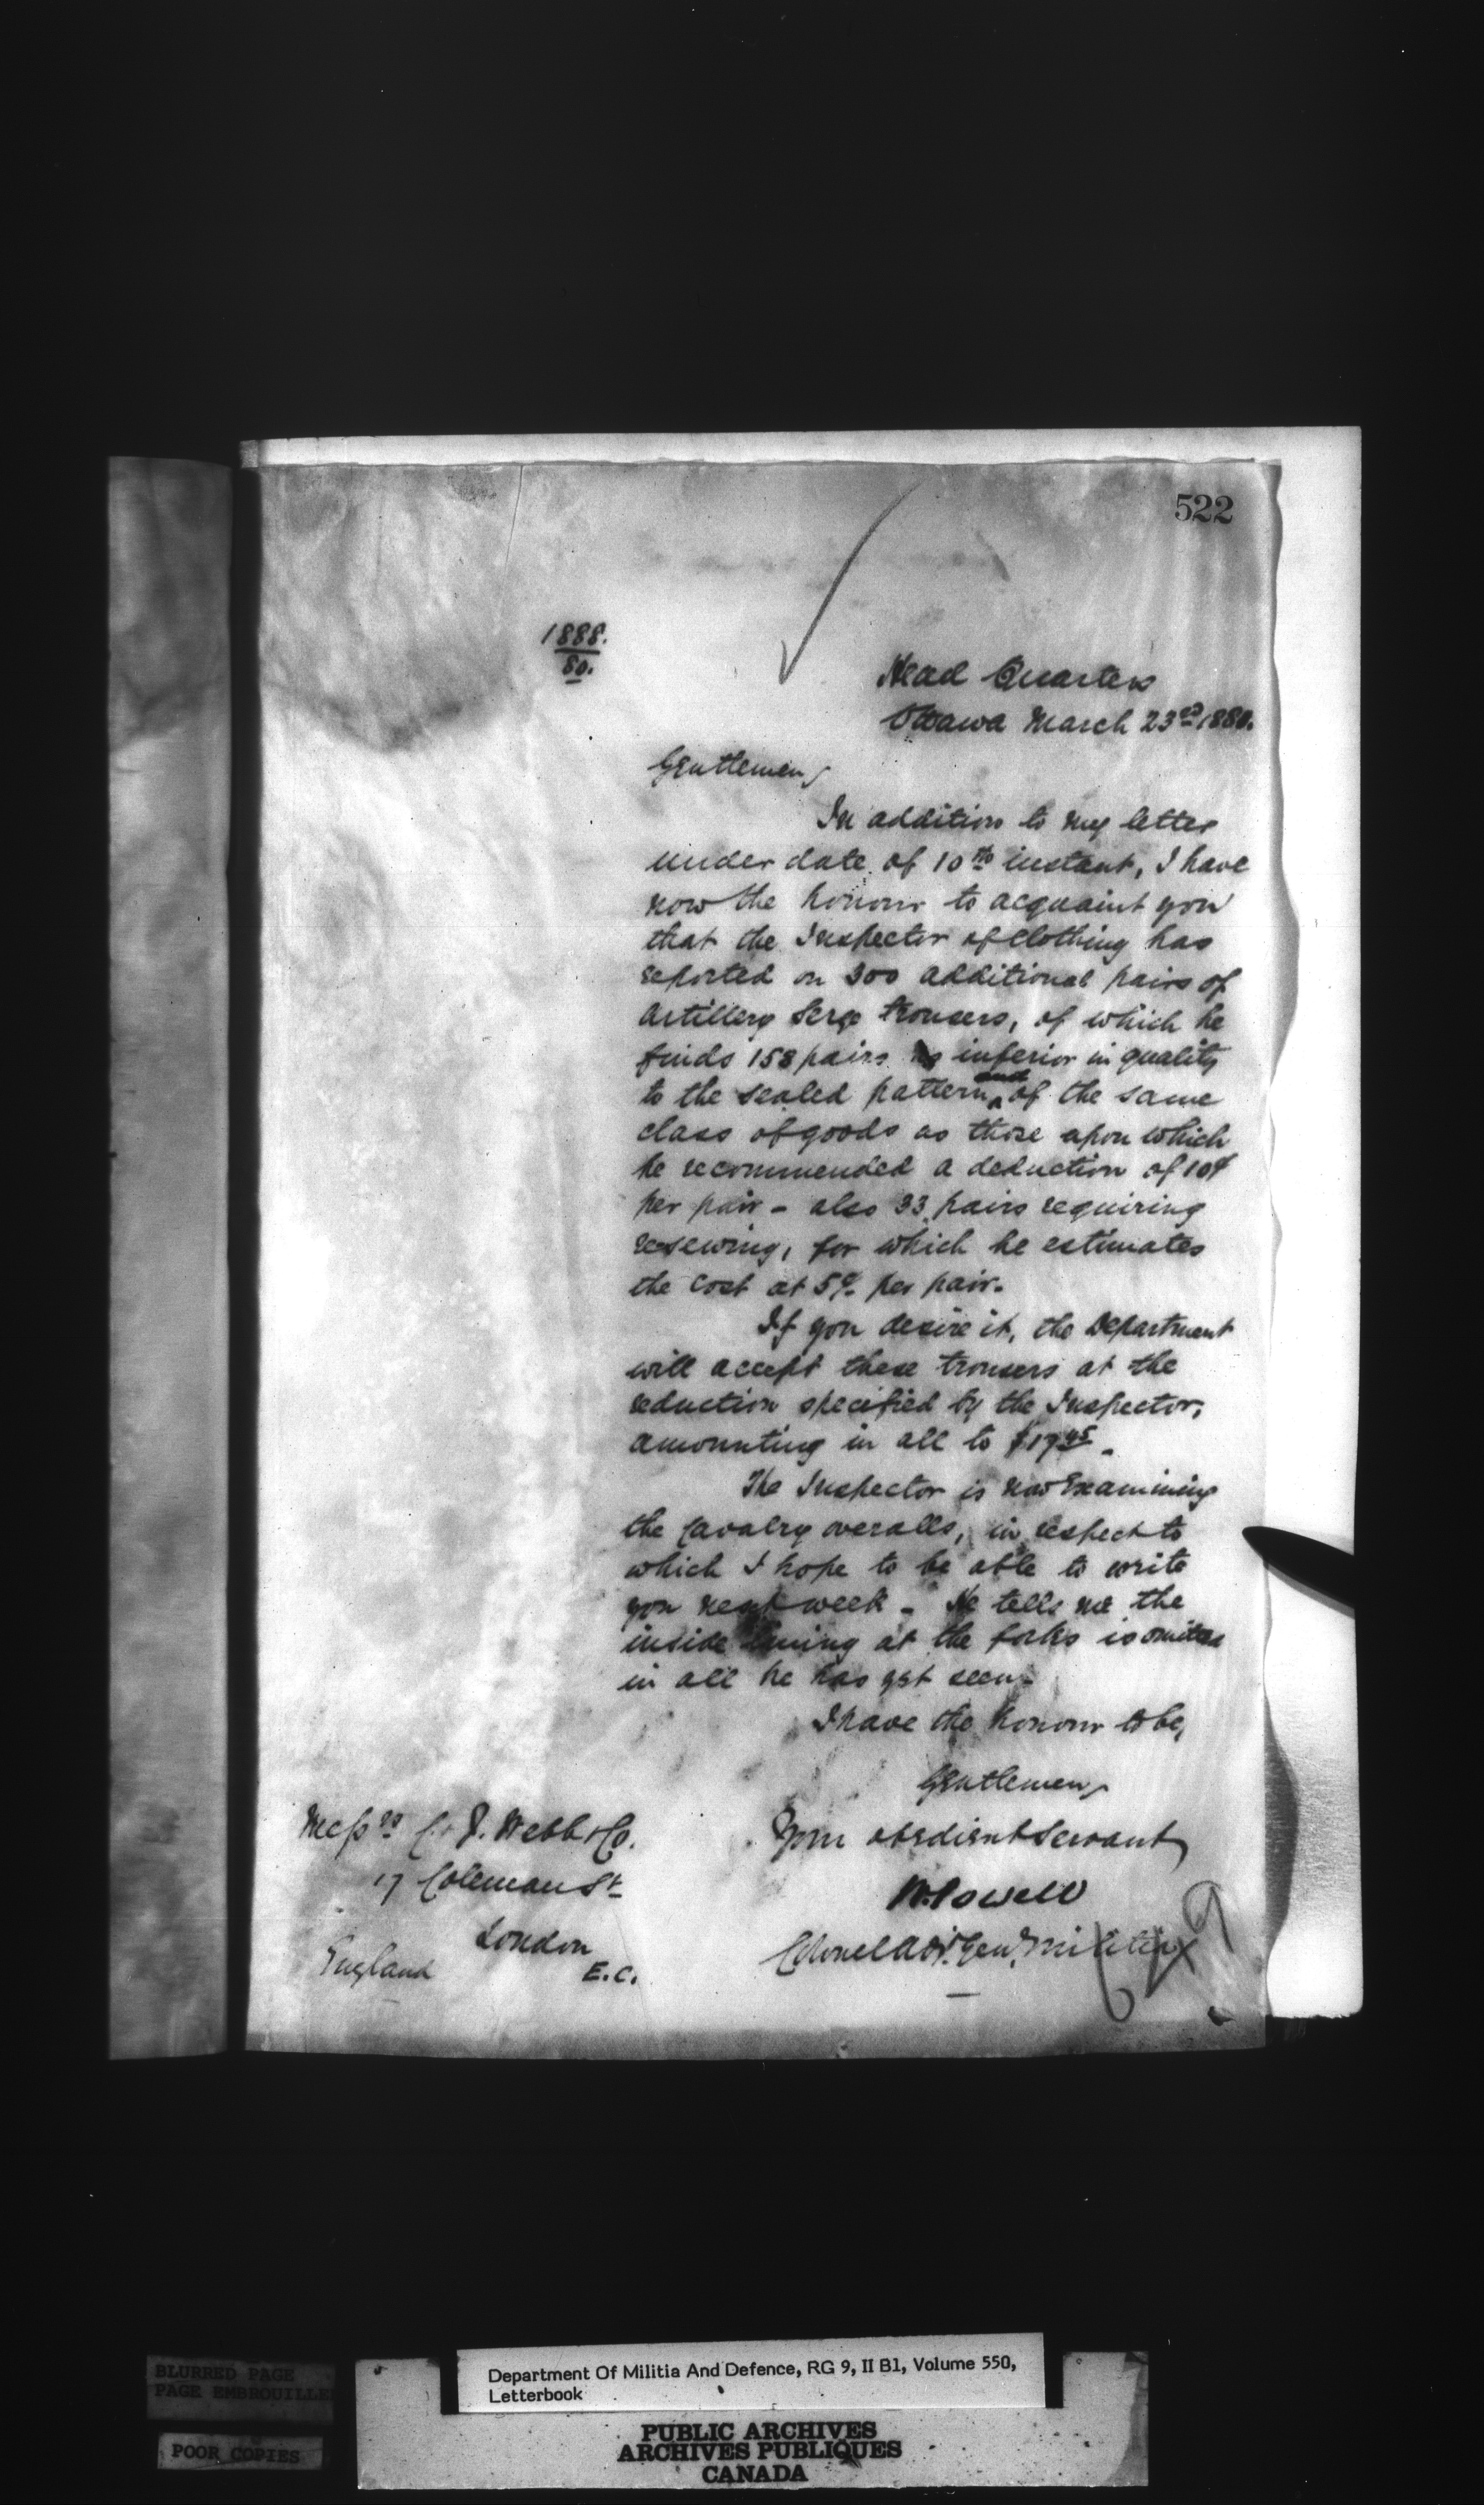 522
1888.
80.
Head Quarters
Ottawa March 23rd 1880.
Gentlemen,
In addition to my letter
under date of 10th instant, I have
now the honour to acquaint you
that the Inspector of Clothing has
reported on 300 additional pairs of
Artillery Serge trousers, of which he
finds 158 pairs inferior in quality
and
to the sealed pattern ^ of the same
class of goods as those upon which
he recommended a deduction of 10¢
per pair - also 33 pairs requiring
resewing, for which he estimates
the cost at 5¢ per pair.
If you desire it, the Department
will accept these trousers at the
reduction specified by the Inspector,
amounting in all to $17.45.
The Inspector is now Examining
the Cavalry overalls, in respect to
which I hope to be able to write
you next week - He tells me the
inside lining at the forks is omitted
in all he has yet seen.
I have the honour to be,
Gentlemen,
Your obedient Servant,
W. Powell
Colonel Adjt. Genl. Militia
Messrs C. & J. Webb & Co.
17 Coleman St
London
E.C.
England
BLURRED PAGE
PAGE EMBROUILLE
POOR COPIES
Department Of Militia And Defence, RG 9, II B1, Volume 550,
Letterbook
PUBLIC ARCHIVES
ARCHIVES PUBLIQUES
CANADA